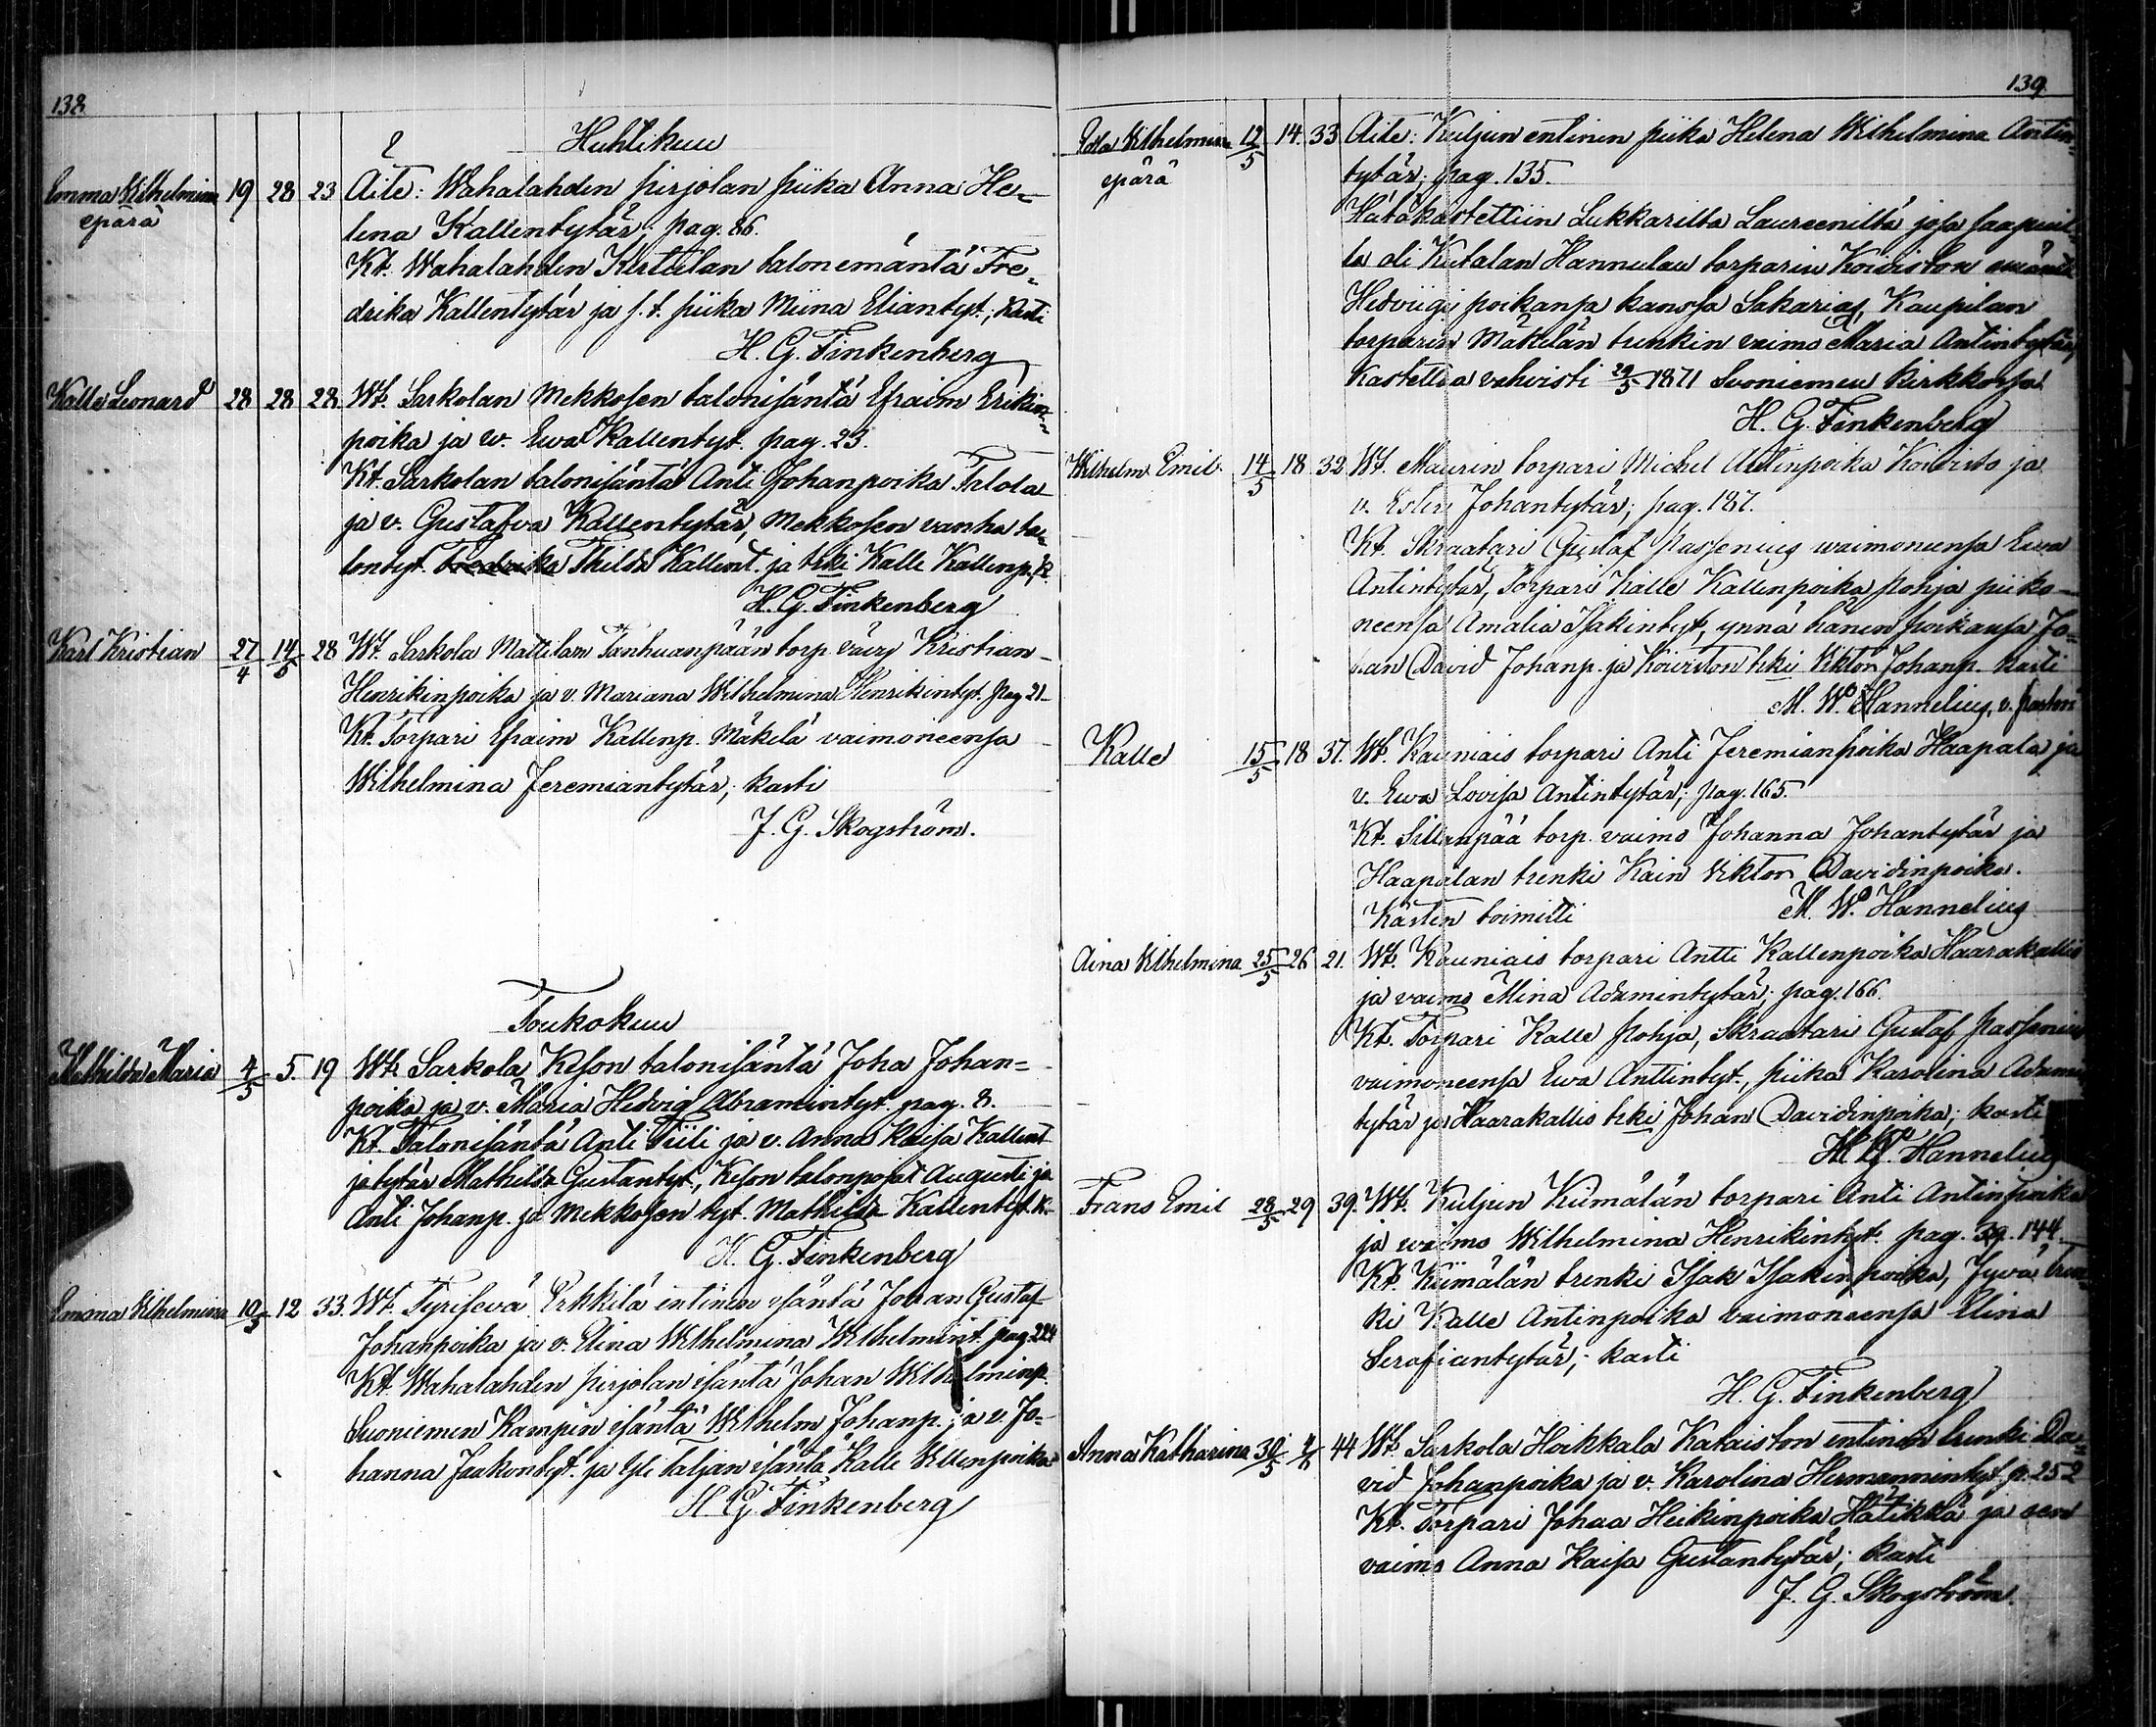 138
Huhtikuu
Emma Wilhelmina 19 28 23 Äite: Wahalahden Pirjolan piika Anna He-
epärä
lena Kallentytär; pag. 86.
Kt. Wahalahden Kerttulan talonemäntä Fre-
drika Kallentytär ja s. t. piika Miina Eliantyt.; kasti
H. G. Finkenberg
Kalle Leonard 28 28 28 Wt. Sarkolan Mekkosen talonisäntä Efraim Erikin-
poika ja w. Ewa Kallentyt. pag. 23.
Kt. Sarkolan talonisäntä Anti Johanpoika Talola
ja v. Gustafva Kallentytär, Mekkosen vanha ta-
lontyt. Fredrika Thilda Kallent. ja trki Kalle Kallenp. k.
H. G. Finkenberg
Karl Kristian 27/4 14/5 28 Wt. Sarkola Mattilan Tanhuanpään torp. vävy Kristian
Henrikinpoika ja v. Mariana Wilhelmina Henrikintyt. pag 21
Kt. Torpari Efraim Kallenp. Mäkelä vaimoneensa
Wilhelmina Jeremiantytär; kasti
J. G. Skogström.
Toukokuu
Mathilda Maria 4/5 5. 19 Wt. Sarkola Keson talonisäntä Joha Johan=
poika ja v. Maria Hedvig Abramintyt. pag. 8.
Kt. Talonisäntä Anti Tiili ja v. Anna Kaisa Kallent
ja tytär Mathilda Gustantyt., Keson talonpojat Augusti ja
Anti Johanp. ja Mekkosen tyt. Mathilda Kallentyt. k.
H. G. Finkenberg
Emma Wilhelmina 10/5 12 33. Wt. Tyrisevä Erkkilä entinen isäntä Johan Gustaf
Johanpoika ja v. Elina Wilhelmina Wilhelmint. pag. 224
Kt. Wahalahden Pirjolan isäntä Johan Wilhelminp.
Suoniemen Kampin isäntä Wilhelm Johanp. ja v. Jo-
hanna Jaakontyt. ja Yli taljan isäntä Kalle Wellenpoika
H. G. Finkenberg
139
Ida Wilhelmina 12/5 14. 33 Äite: Kuljun entinen piika Helena Wilhelmina Antin-
epärä
tytär; pag. 135.
Hätäkastettiin Lukkarilta Laureenilta josa saapuvil-
la oli Kutalan Hannulan torparin Koiviston emäntä
Hedviigi poikansa kanssa Sakarias, Kaupilan
torparin Mäkelän trenkin vaimo Maria Antintytär,
Kastetta vahvisti 29/5 1871 Suoniemen kirkkossa
H. G. Finkenberg
Wilhelm Emil 14/5 18 32 Wt. Maurin torpari Michel Antinpoika Koivisto ja
v. Ester Johantytär; pag. 187.
Kt. Skraatari Gustaf Passenius waimoneensa Ewa
Antintytär, Torpari Kalle Kallenpoika Pohja piiko-
neensa Amalia Isakintyt, ynnä hänen poikansa Jo-
han David Johanp. ja Koiviston trki Viktor Johanp. kasti
M. W. Hannelius, v. pastori
Kalle 15/5 18 37. Wt. Kauniais torpari Anti Jeremianpoika Haapala ja
v. Ewa Lovisa Antintytär; pag. 165.
Kt. Sillanpää torp. vaimo Johanna Johantytär ja
Haapalan trenki Kain Viktor Davidinpoika.
Kasten toimitti M. W. Hannelius
Aina Wilhelmina 25/5 26 21. Wt. Kauniais torpari Antti Kallenpoika Haarakallio
ja vaimo Mina Adamintytär; pag. 166.
Kt. Torpari Kalle Pohja, Skraatari Gustaf Passenius
vaimoneensa Ewa Anttintyt., piika Karolina Adamin
tytär ja Haarakallio trki Johan Davidinpoika; kasti
M. W. Hannelius
Frans Emil 28/5 29 39. Wt. Kuljun Kiimälän torpari Anti Antinpoika
ja vaimo Wilhelmina Henrikintyt. pag. 39. 144.
Kt. Kiimälän trenki Isak Isakinpoika, Jyvä tren-
ki Kalle Antinpoika vaimoneensa Elina
Serafiantytär; kasti
H. G. Finkenberg
Anna Katharina 30/5 4/6 44 Wt. Sarkola Hoikkala Kataiston entinen trenki Da-
vid Johanpoika ja v. Karolina Hermannintyt. p. 252
Kt. Torpari Johaa Heikinpoika Hätikkä ja sen
vaimo Anna Kaisa Gustantytär; kasti
J. G. Skogström.